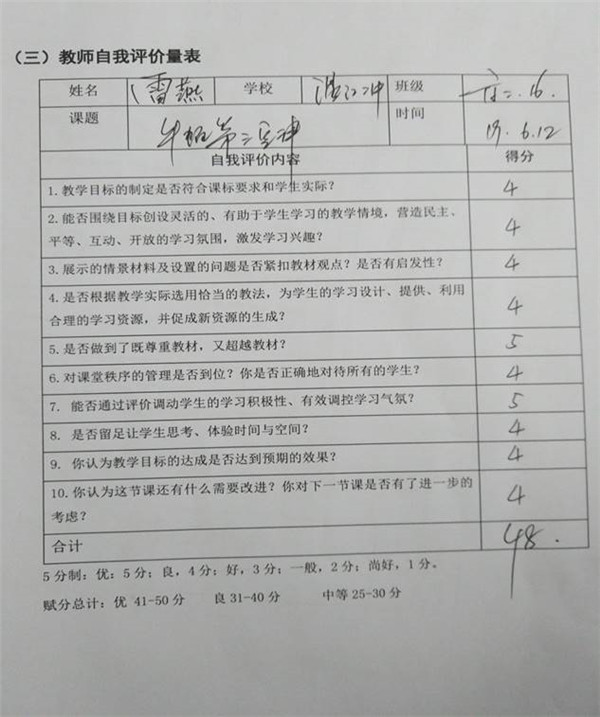 （三）教师自我评价量表
姓名 雷燕 学校 班级 16.
课题 牛顿第二定律 时间 17.6.12
自我评价内容 得分
1.教学目标的制定是否符合课标要求和学生实际？ 4
2.能否围绕目标创设灵活的、有助于学生学习的教学情境，营造民主、
平等、互动、开放的学习氛围，激发学习兴趣？ 4
3.展示的情景材料及设置的问题是否紧扣教材观点？是否有启发性？ 4
4.是否根据教学实际选用恰当的教法，为学生的学习设计、提供、利用
合理的学习资源，并促成新资源的生成？ 4
5.是否做到了既尊重教材，又超越教材？ 5
6.对课堂秩序的管理是否到位？你是否正确地对待所有的学生？ 4
7. 能否通过评价调动学生的学习积极性、有效调控学习气氛？ 5
8. 是否留足让学生思考、体验时间与空间？ 4
9. 你认为教学目标的达成是否达到预期的效果？ 4
10.你认为这节课还有什么需要改进？你对下一节课是否有了进一步的
考虑？ 4
合计 48.
5分制：优：5分；良，4分；好，3分；一般，2分；尚好，1分。
赋分总计：优 41-50分 良31-40分 中等25-30分